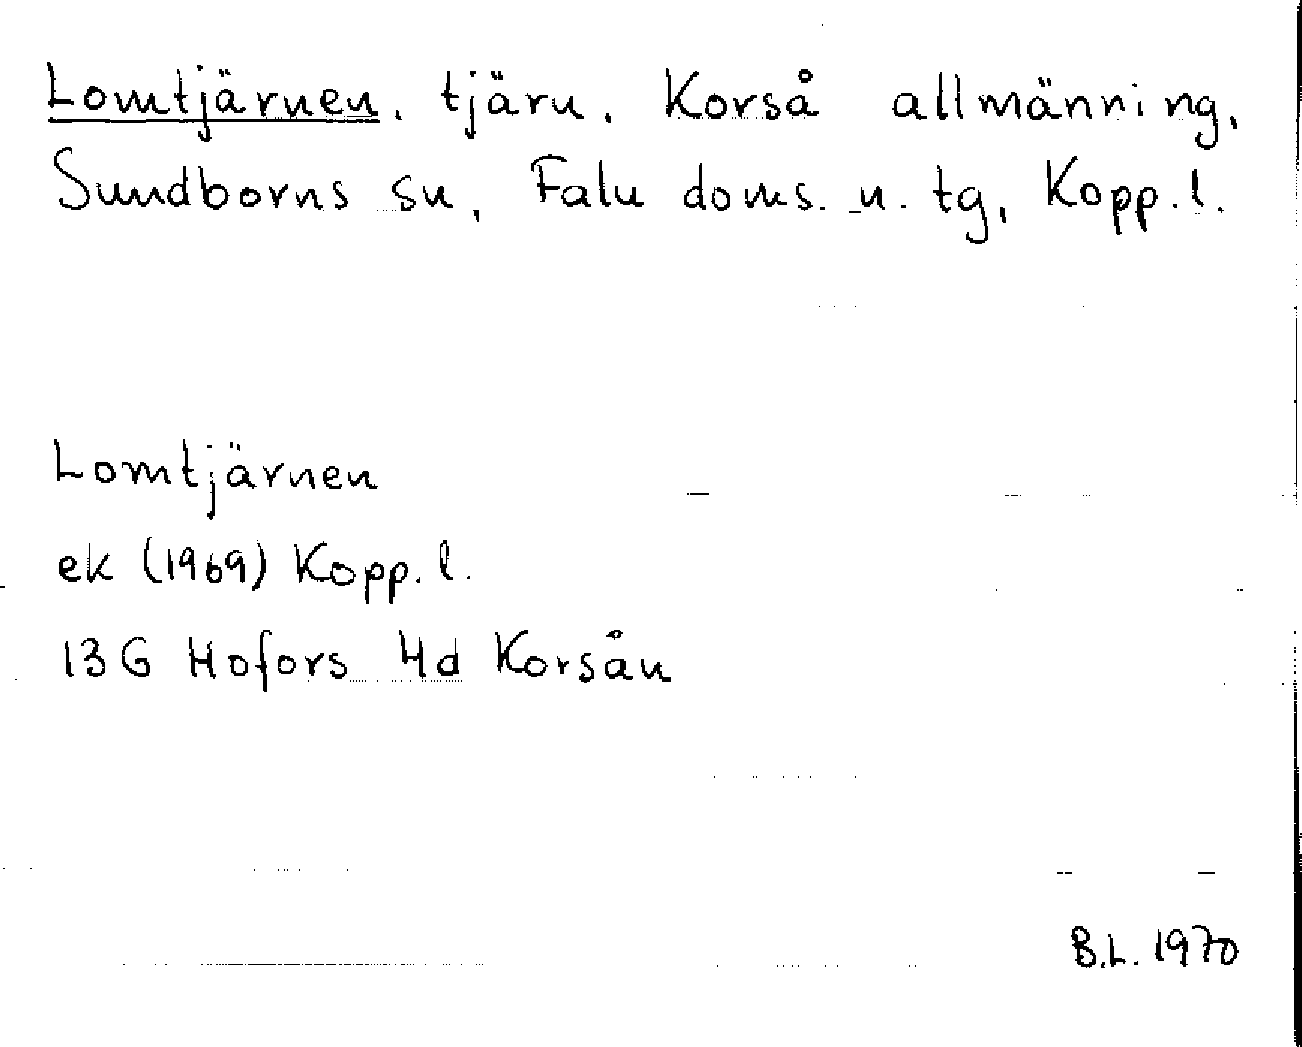 Lomtjärnen, tjärn, Korså allmänning,
Sundborns sn, Falu doms. n. tg, Kopp. l.
Lomtjärnen
ek (1969) Kopp. l.
13G Hofors 4d Korsån
B.L. 1970